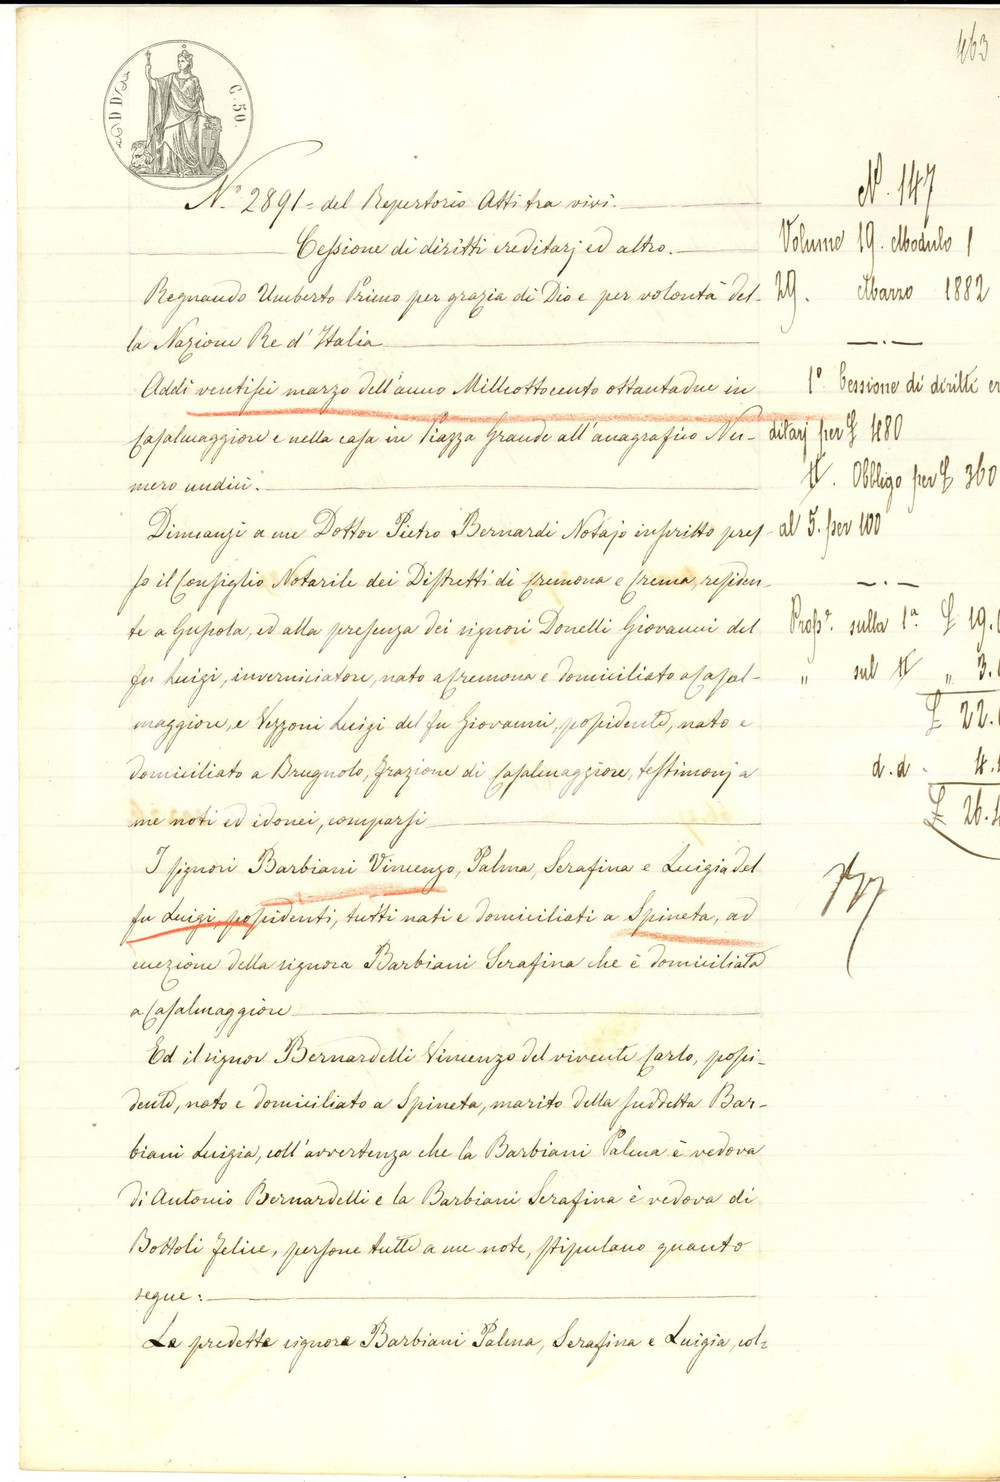 463
C. 50.
N.° 2891 = del Repertorio Atti tra vivi.
Cessione di diritti creditarj ed altro.
Regnando Umberto Primo per grazia di Dio e per volontà del-
la Nazione Re d'Italia
Addì ventisei marzo dell'anno Milleottocento ottantadue in
Casalmaggiore e nella casa in Piazza Grande all'anagrafico Nu-
mero undici.
Dinnanzi a me Dottor Pietro Bernardi Notajo inscritto pres-
so il Consiglio Notarile dei Distretti di Cremona e Crema, residen-
te a Gussola, ed alla presenza dei signori Donelli Giovanni del
fu Luigi, inverniciatore, nato a Cremona e domiciliato a Casal-
maggiore, e Vezzoni Luigi del fu Giovanni, possidente, nato e
domiciliato a Brugnolo, frazione di Casalmaggiore, testimonj a
me noti ed idonei, comparsi
I signori Barbiani Vincenzo, Palma, Serafina e Luigia del
fu Luigi, possidenti, tutti nati e domiciliati a Spineta, ad
eccezione della signora Barbiani Serafina che è domiciliata
a Casalmaggiore
Ed il signor Bernardelli Vincenzo del vivente Carlo, possi-
dente, nato e domiciliato a Spineta, marito della suddetta Bar-
biani Luigia, coll'avvertenza che la Barbiani Palma è vedova
di Antonio Bernardelli e la Barbiani Serafina è vedova di
Bottoli Felice, persone tutte a me note, stipulano quanto
segue:
Le predette signore Barbiani Palma, Serafina e Luigia, col=
N. 147
Volume 19. Modulo 1
29. Marzo 1882
1° Cessione di diritti cre
ditarj per £ 480
II. Obbligo per £ 360
al 5. per 100
sulla 1a. £ 19.
" sul II " 3.
£ 22.
d.d. 4.
£ 26.